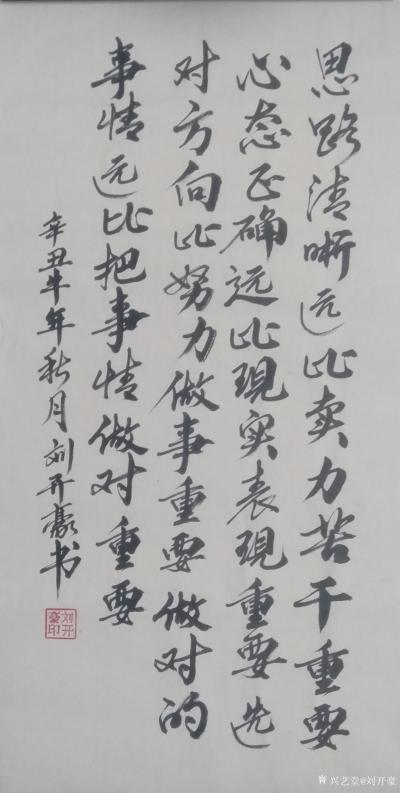 思路清晰远比卖力苦干重要
心态正确远比现实表现重要选
对方向比努力做事重要做对的
事情远比把事情做对重要
辛丑牛年秋月刘开豪书
刘开豪印
兴艺堂@刘开豪